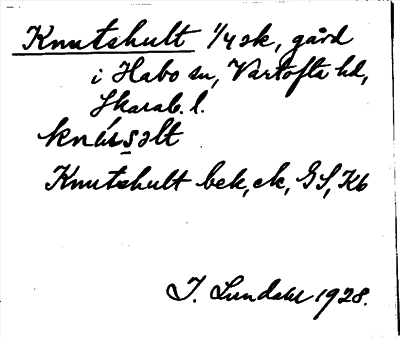 Knutshult 1/4 sk, gård
i Habo sn, Vartofta hd,
Skarab. l.
knússält
Knutshult bek, ek, GS, Kb
I. Lundahl 1928.